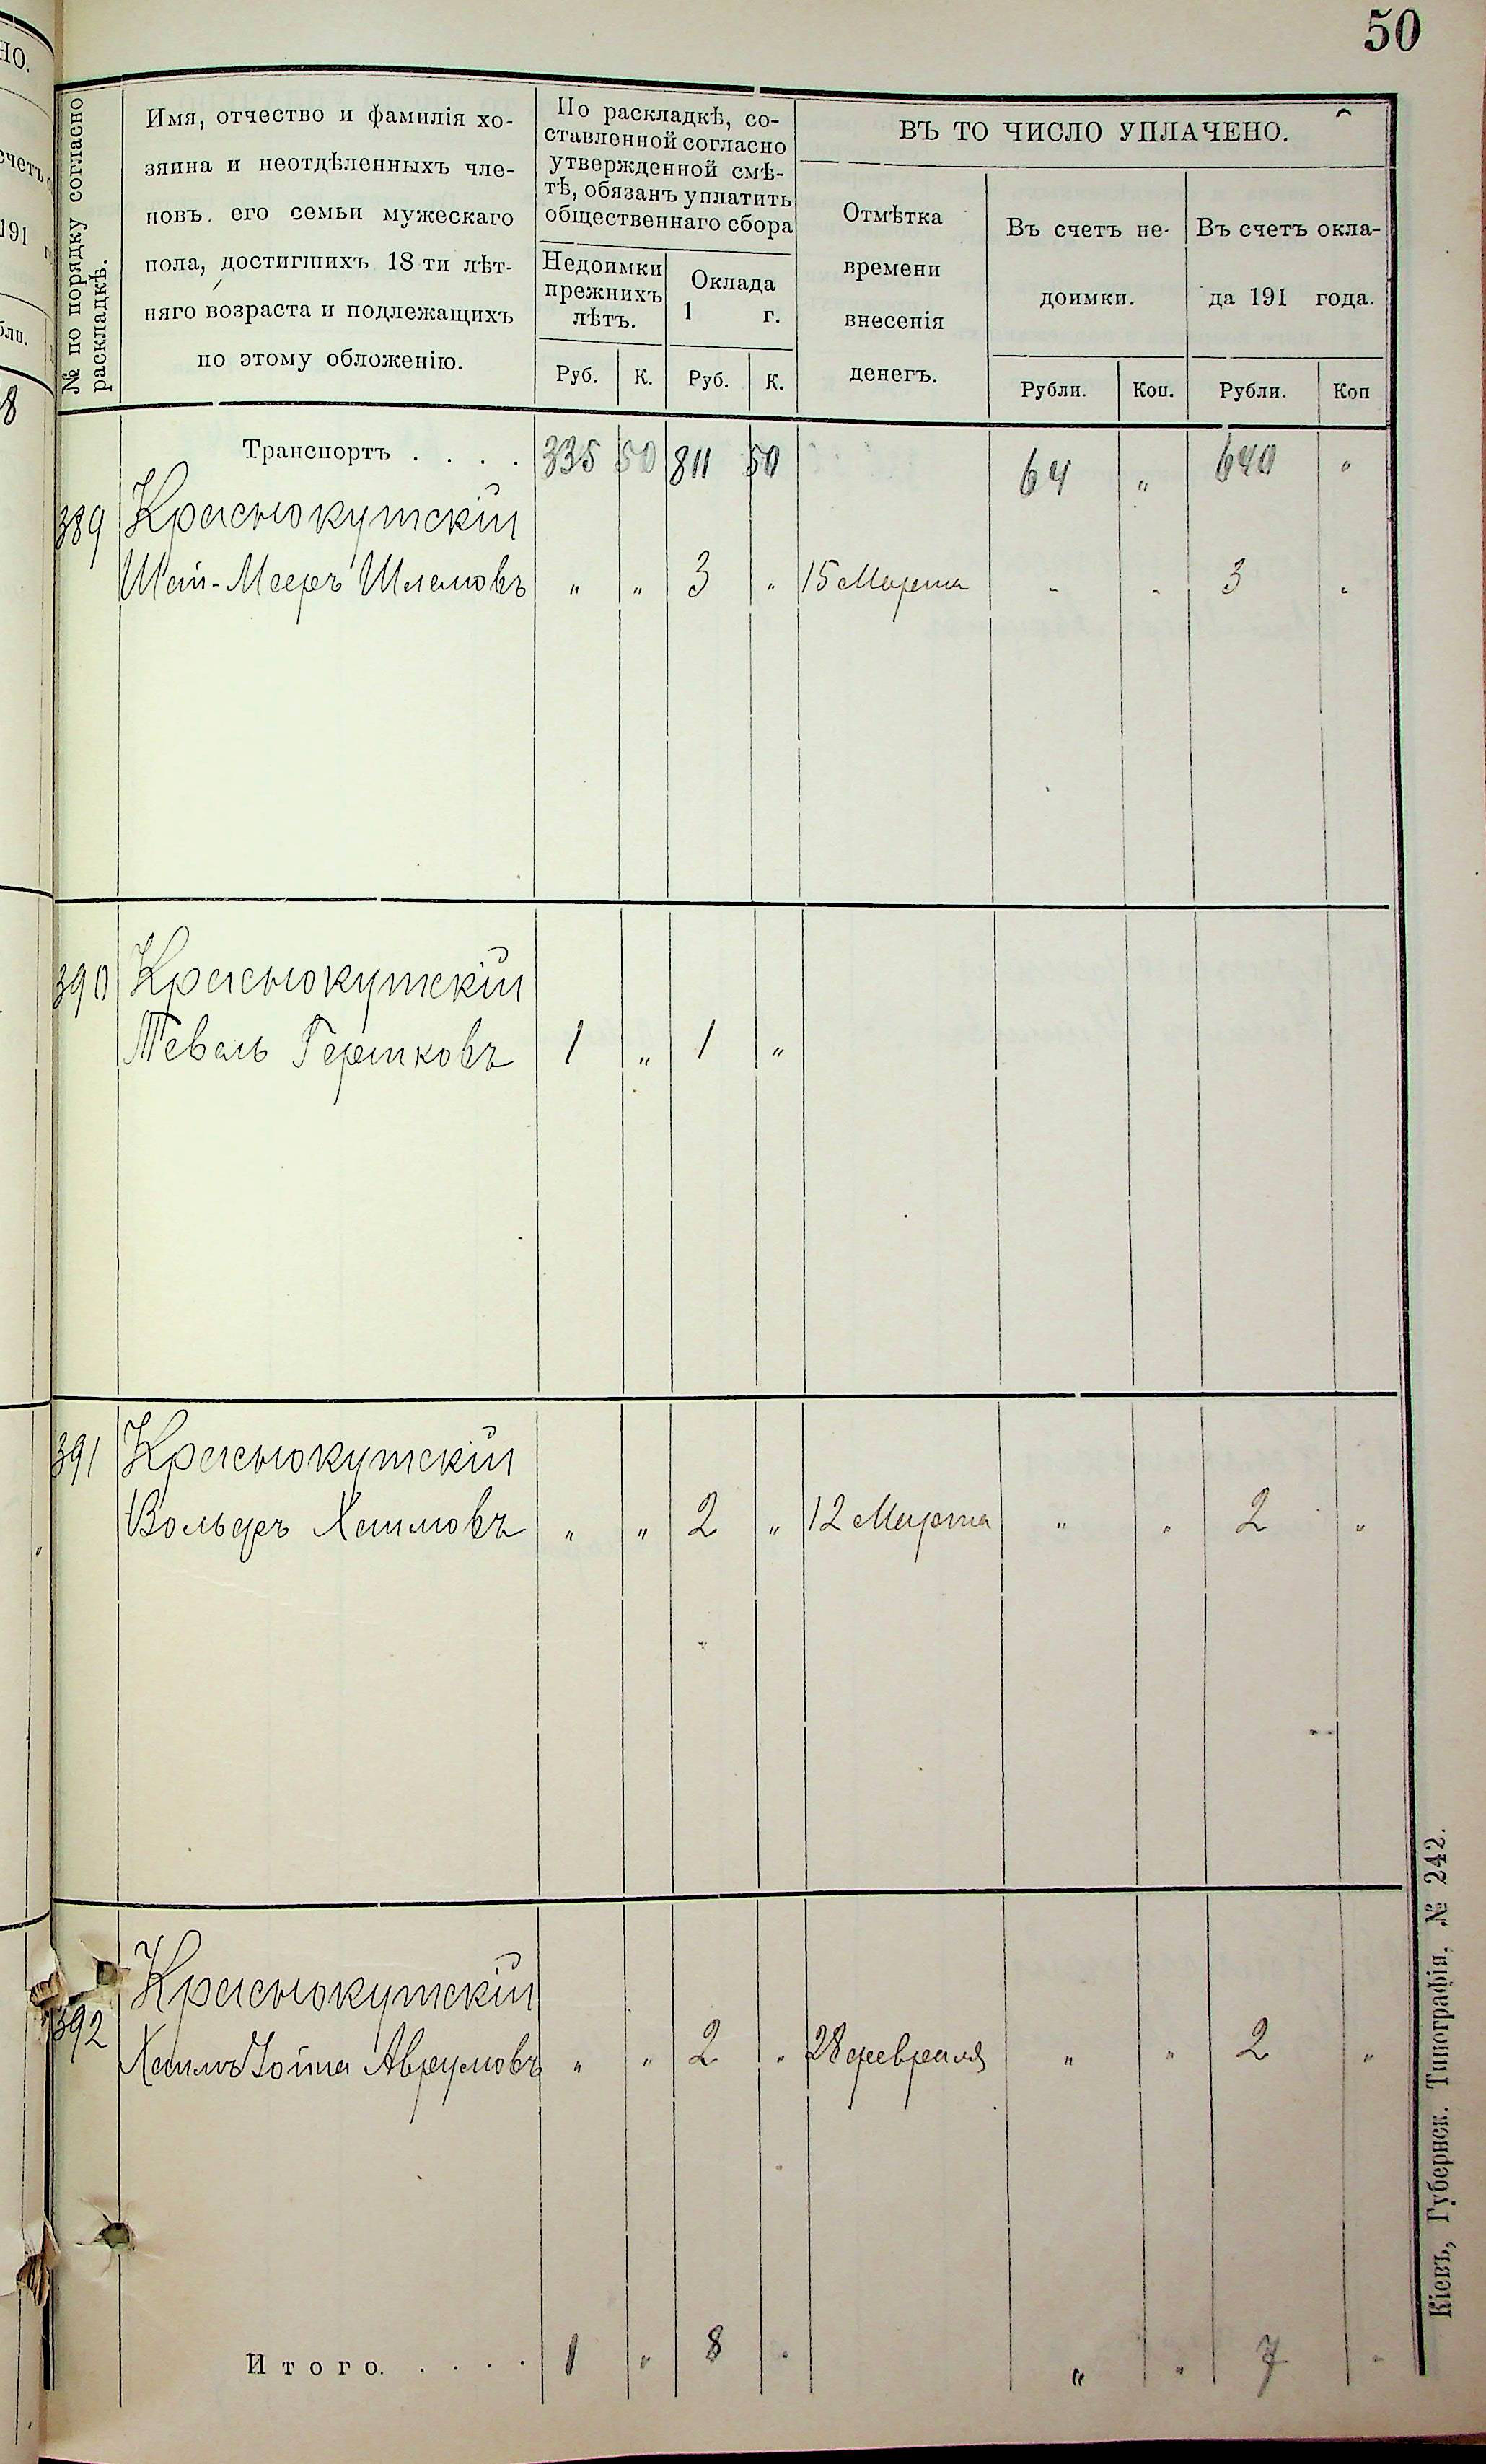 50
№ по порядку согласно
раскладкѣ.
Имя, отчество и фамилія хо-
зяина и неотдѣленныхъ чле-
новъ его семьи мужескаго
пола, достигшихъ 18 ти лѣт-
няго возраста и подлежащихъ
по этому обложенію.
По раскладкѣ, со-
ставленной согласно
утвержденной смѣ-
тѣ, обязанъ уплатить
общественнаго сбора
Недоимки
прежнихъ
лѣтъ.
Оклада
1 г.
Руб. К. Руб. К.
ВЪ ТО ЧИСЛО УПЛАЧЕНО.
Отмѣтка
времени
внесенія
денегъ.
Въ счетъ не-
доимки.
Въ счетъ окла-
да 191 года.
Рубли. Коп. Рубли. Коп
Транспортъ . . . . 335 50 811 50 64 " 640 "
389 Краснокутскій
Мееръ Шлемовъ " " 3 " 15 Марта " " 3 "
390 Краснокутскій
Тевель Гершковъ 1 " 1 "
391 Краснокутскій
Вольфъ Хаимовъ " " 2 " 12 Марта " " 2 "
392 Краснокутскій
Хаимъ Аврумовъ " " 2 " 28 февраля " " 2 "
Итого. . . . . 1 " 8 " " " 7 "
Кіевъ, Губернск. Типографія, № 242.